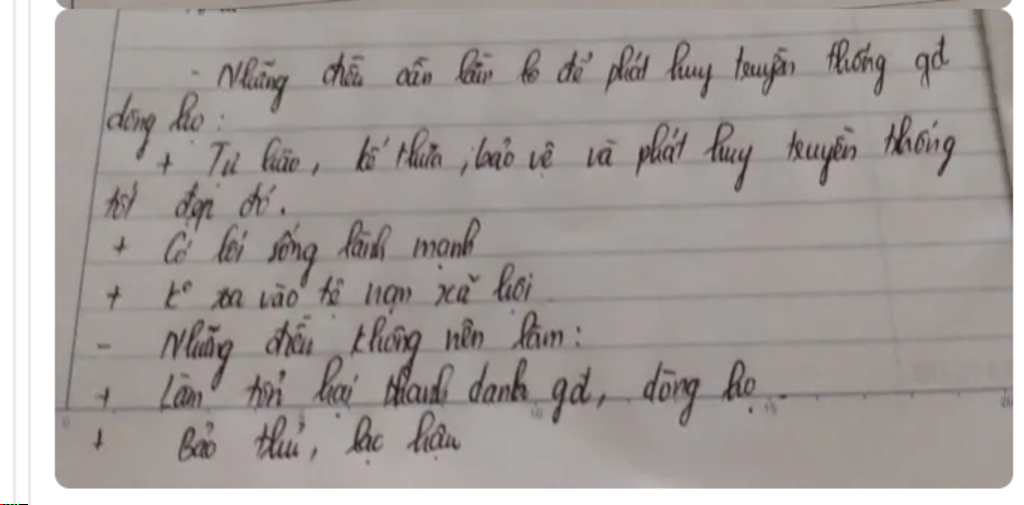 - Những điều cần làm để phát huy truyền thống gđ
dòng họ:
+ Tự hào, kế thừa, bảo vệ và phát huy truyền thống
tốt đẹp đó.
+ Có lối sống lành mạnh
+ k° sa vào tệ nạn xã hội
- Những điều không nên làm:
+ Làm tổn hại thanh danh gđ, dòng họ
+ Bảo thủ, lạc hậu